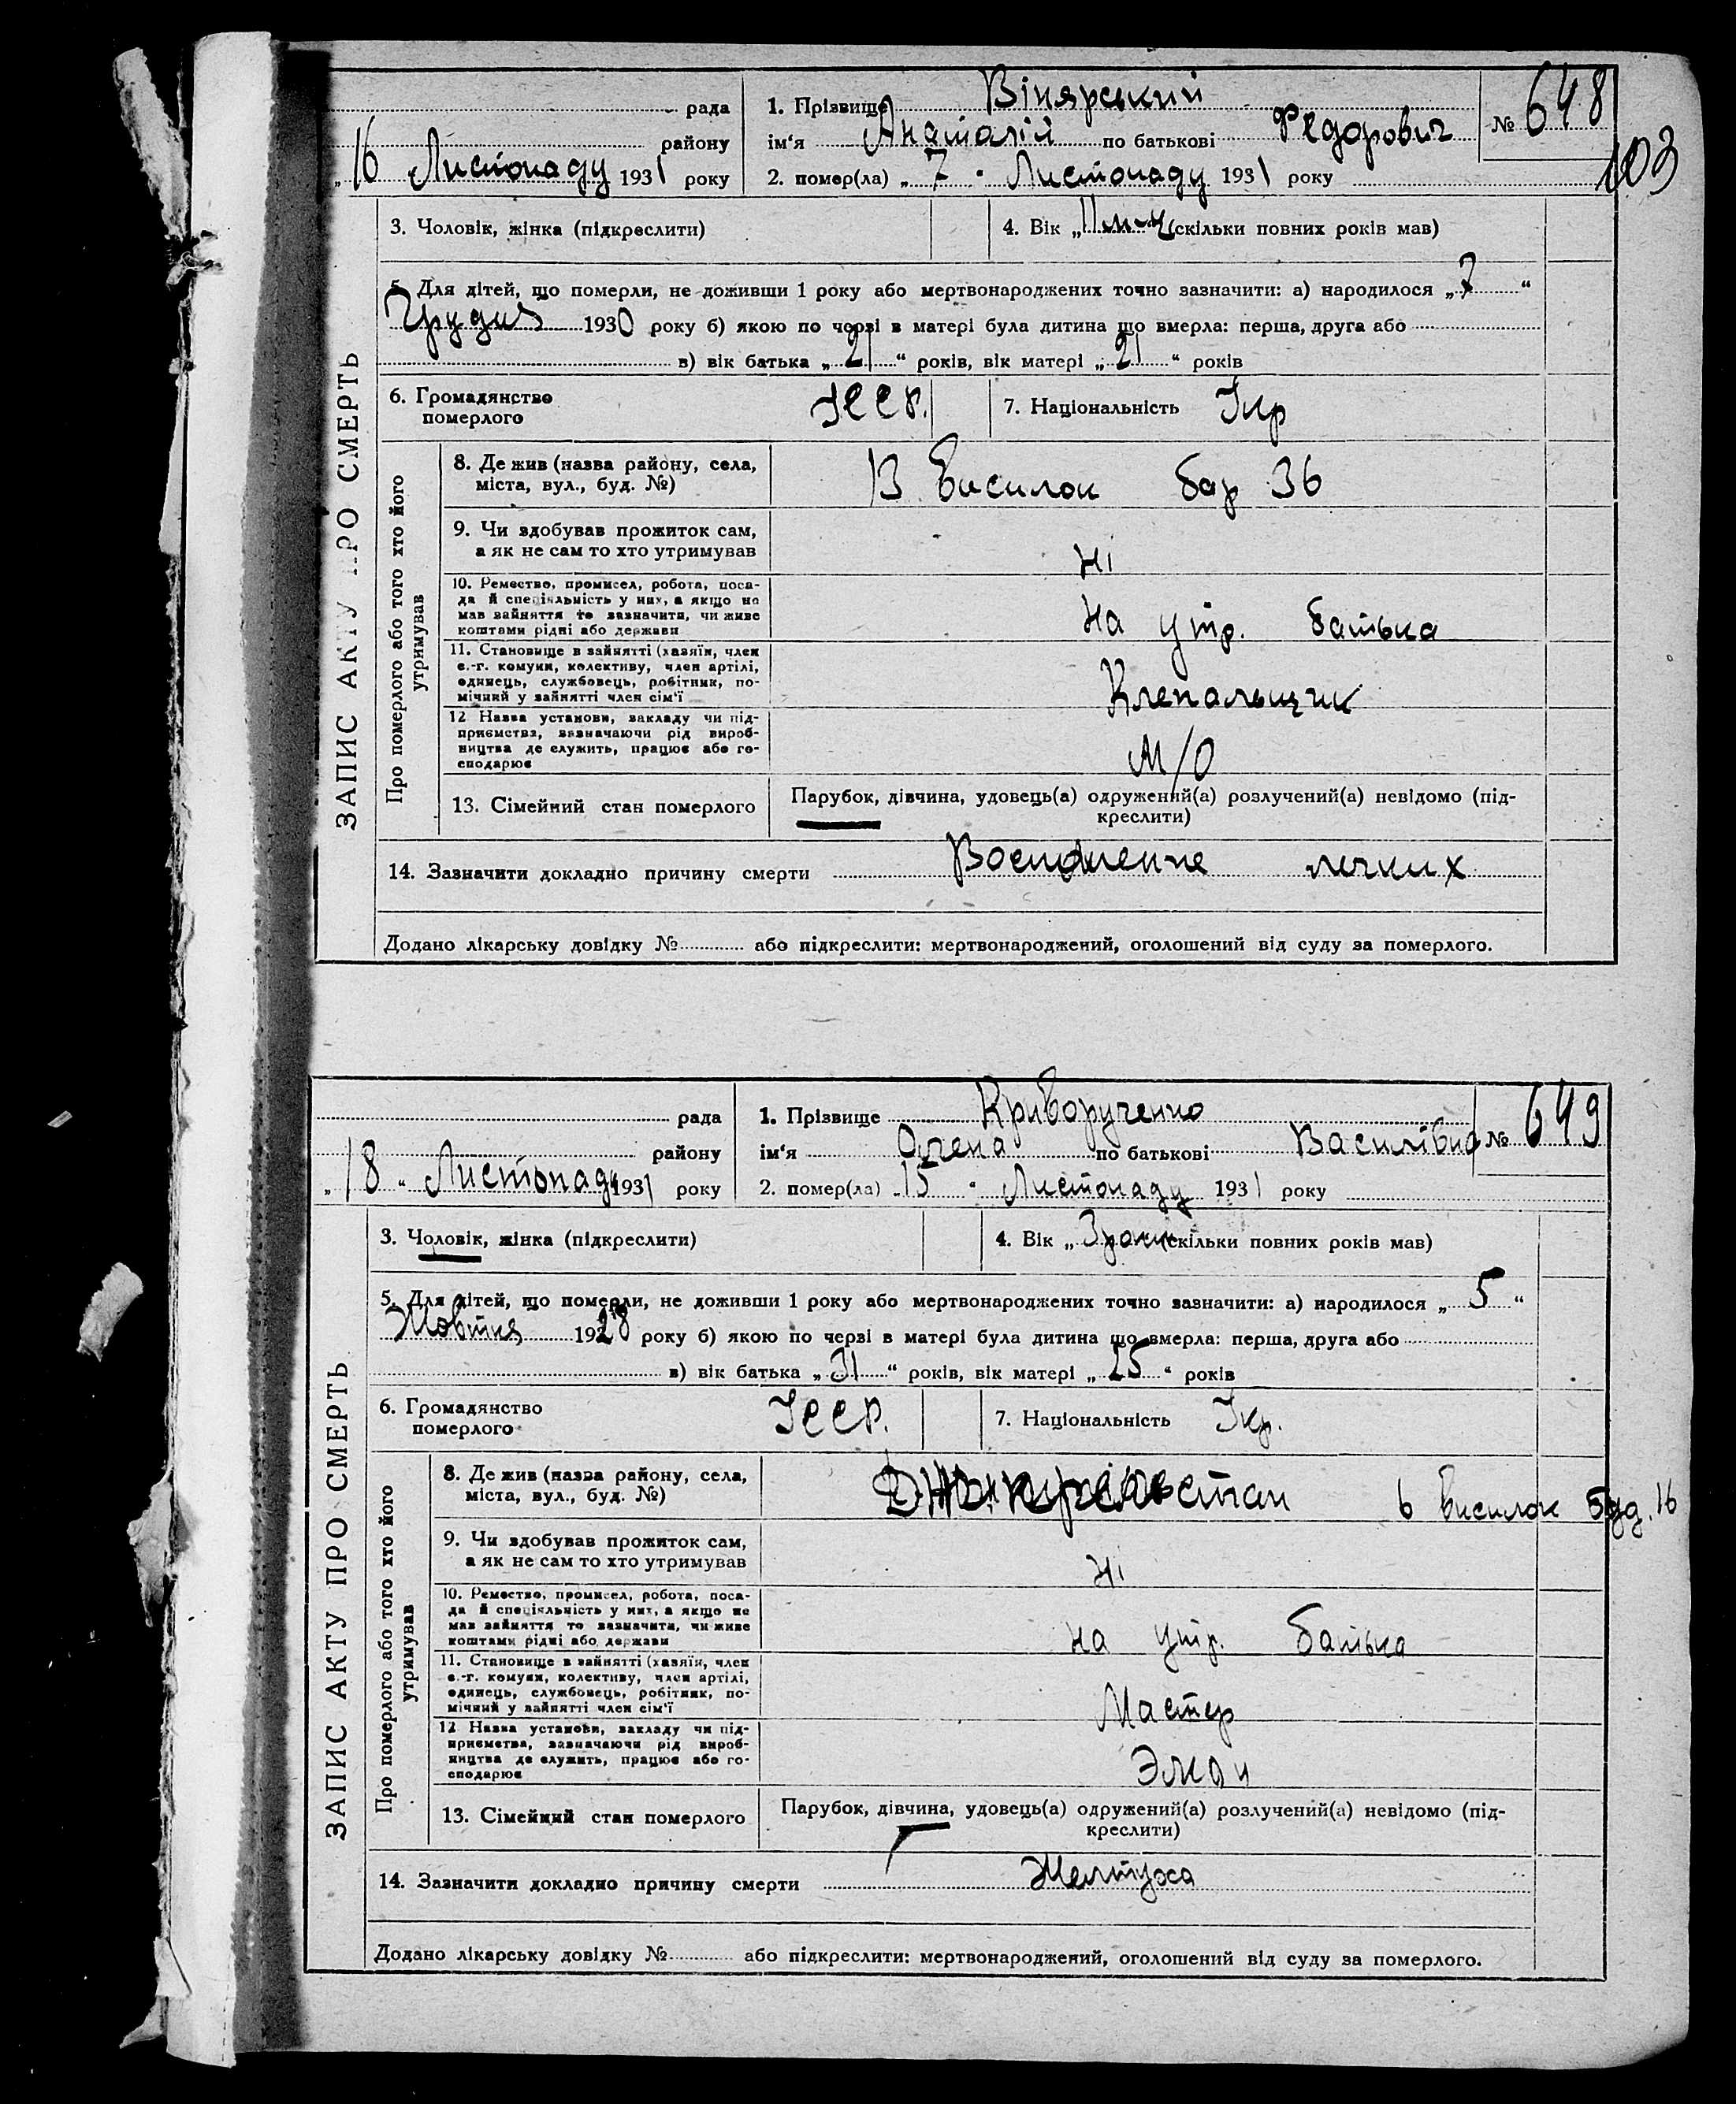 рада 1. Прізвище Вінярський № 648
району ім'я Анаталій по батькові Федорович
103
„16 Листопаду 1931 року 2. помер(ла) „7" Листопаду 1931 року
3. Чоловік, жінка (підкреслити) 4. Вік „11 м-ц (скільки повних років мав)
5. Для дітей, що померли, не доживши 1 року або мертвонароджених точно зазначити: а) народилося „7"
Грудня 1930 року б) якою по черзі в матері була дитина що вмерла: перша, друга або
в) вік батька „21" років, вік матері „21" років
6. Громадянство УССР. 7. Національність Укр
померлого
ЗАПИС АКТУ ПРО СМЕРТЬ
Про померлого або того хто його
утримував
8. Де жив (назва району, села, В. Висилок бар 36
міста, вул., буд. №)
9. Чи здобував прожиток сам,
а як не сам то хто утримував Ні
10. Ремество, промисел, робота, поса-
да й спеціяльність у них, а якщо не
мав зайняття то зазначити, чи живе
коштами рідні або держави На утр. батька
11. Становище в зайнятті (хазяїн, член
с.-г. комуни, колективу, член артілі,
одинець, службовець, робітник, по-
мічний у зайнятті член сім'ї Клепальщик
12 Назва установи, закладу чи під-
приємства, зазначаючи рід вироб-
ництва де служить, працює або го-
сподарює М/О
13. Сімейний стан померлого Парубок, дівчина, удовець(а) одружений(а) розлучений(а) невідомо (під-
креслити)
14. Зазначити докладно причину смерти легких
Додано лікарську довідку № або підкреслити: мертвонароджений, оголошений від суду за померлого.
рада 1. Прізвище Криворученко № 649
району ім'я Олена по батькові Василівна
„18" Листопаду 1931 року 2. помер(ла) „15" Листопаду 1931 року
3. Чоловік, жінка (підкреслити) 4. Вік „3 роки (скільки повних років мав)
5. Для дітей, що померли, не доживши 1 року або мертвонароджених точно зазначити: а) народилося „5"
Жовтня 1928 року б) якою по черзі в матері була дитина що вмерла: перша, друга або
в) вік батька „31" років, вік матері „25" років
6. Громадянство УССР. 7. Національність Укр.
померлого
ЗАПИС АКТУ ПРО СМЕРТЬ
Про померлого або того хто його
утримував
8. Де жив (назва району, села, в висилок буд. 16
міста, вул., буд. №)
9. Чи здобував прожиток сам,
а як не сам то хто утримував Ні
10. Ремество, промисел, робота, поса-
да й спеціяльність у них, а якщо не
мав зайняття то зазначити, чи живе
коштами рідні або держави на утр. батька
11. Становище в зайнятті (хазяїн, член
с.-г. комуни, колективу, член артілі,
одинець, службовець, робітник, по-
мічний у зайнятті член сім'ї Мастер
12 Назва установи, закладу чи під-
приємства, зазначаючи рід вироб-
ництва де служить, працює або го-
сподарює
13. Сімейний стан померлого Парубок, дівчина, удовець(а) одружений(а) розлучений(а) невідомо (під-
креслити)
14. Зазначити докладно причину смерти Желтуха
Додано лікарську довідку № або підкреслити: мертвонароджений, оголошений від суду за померлого.